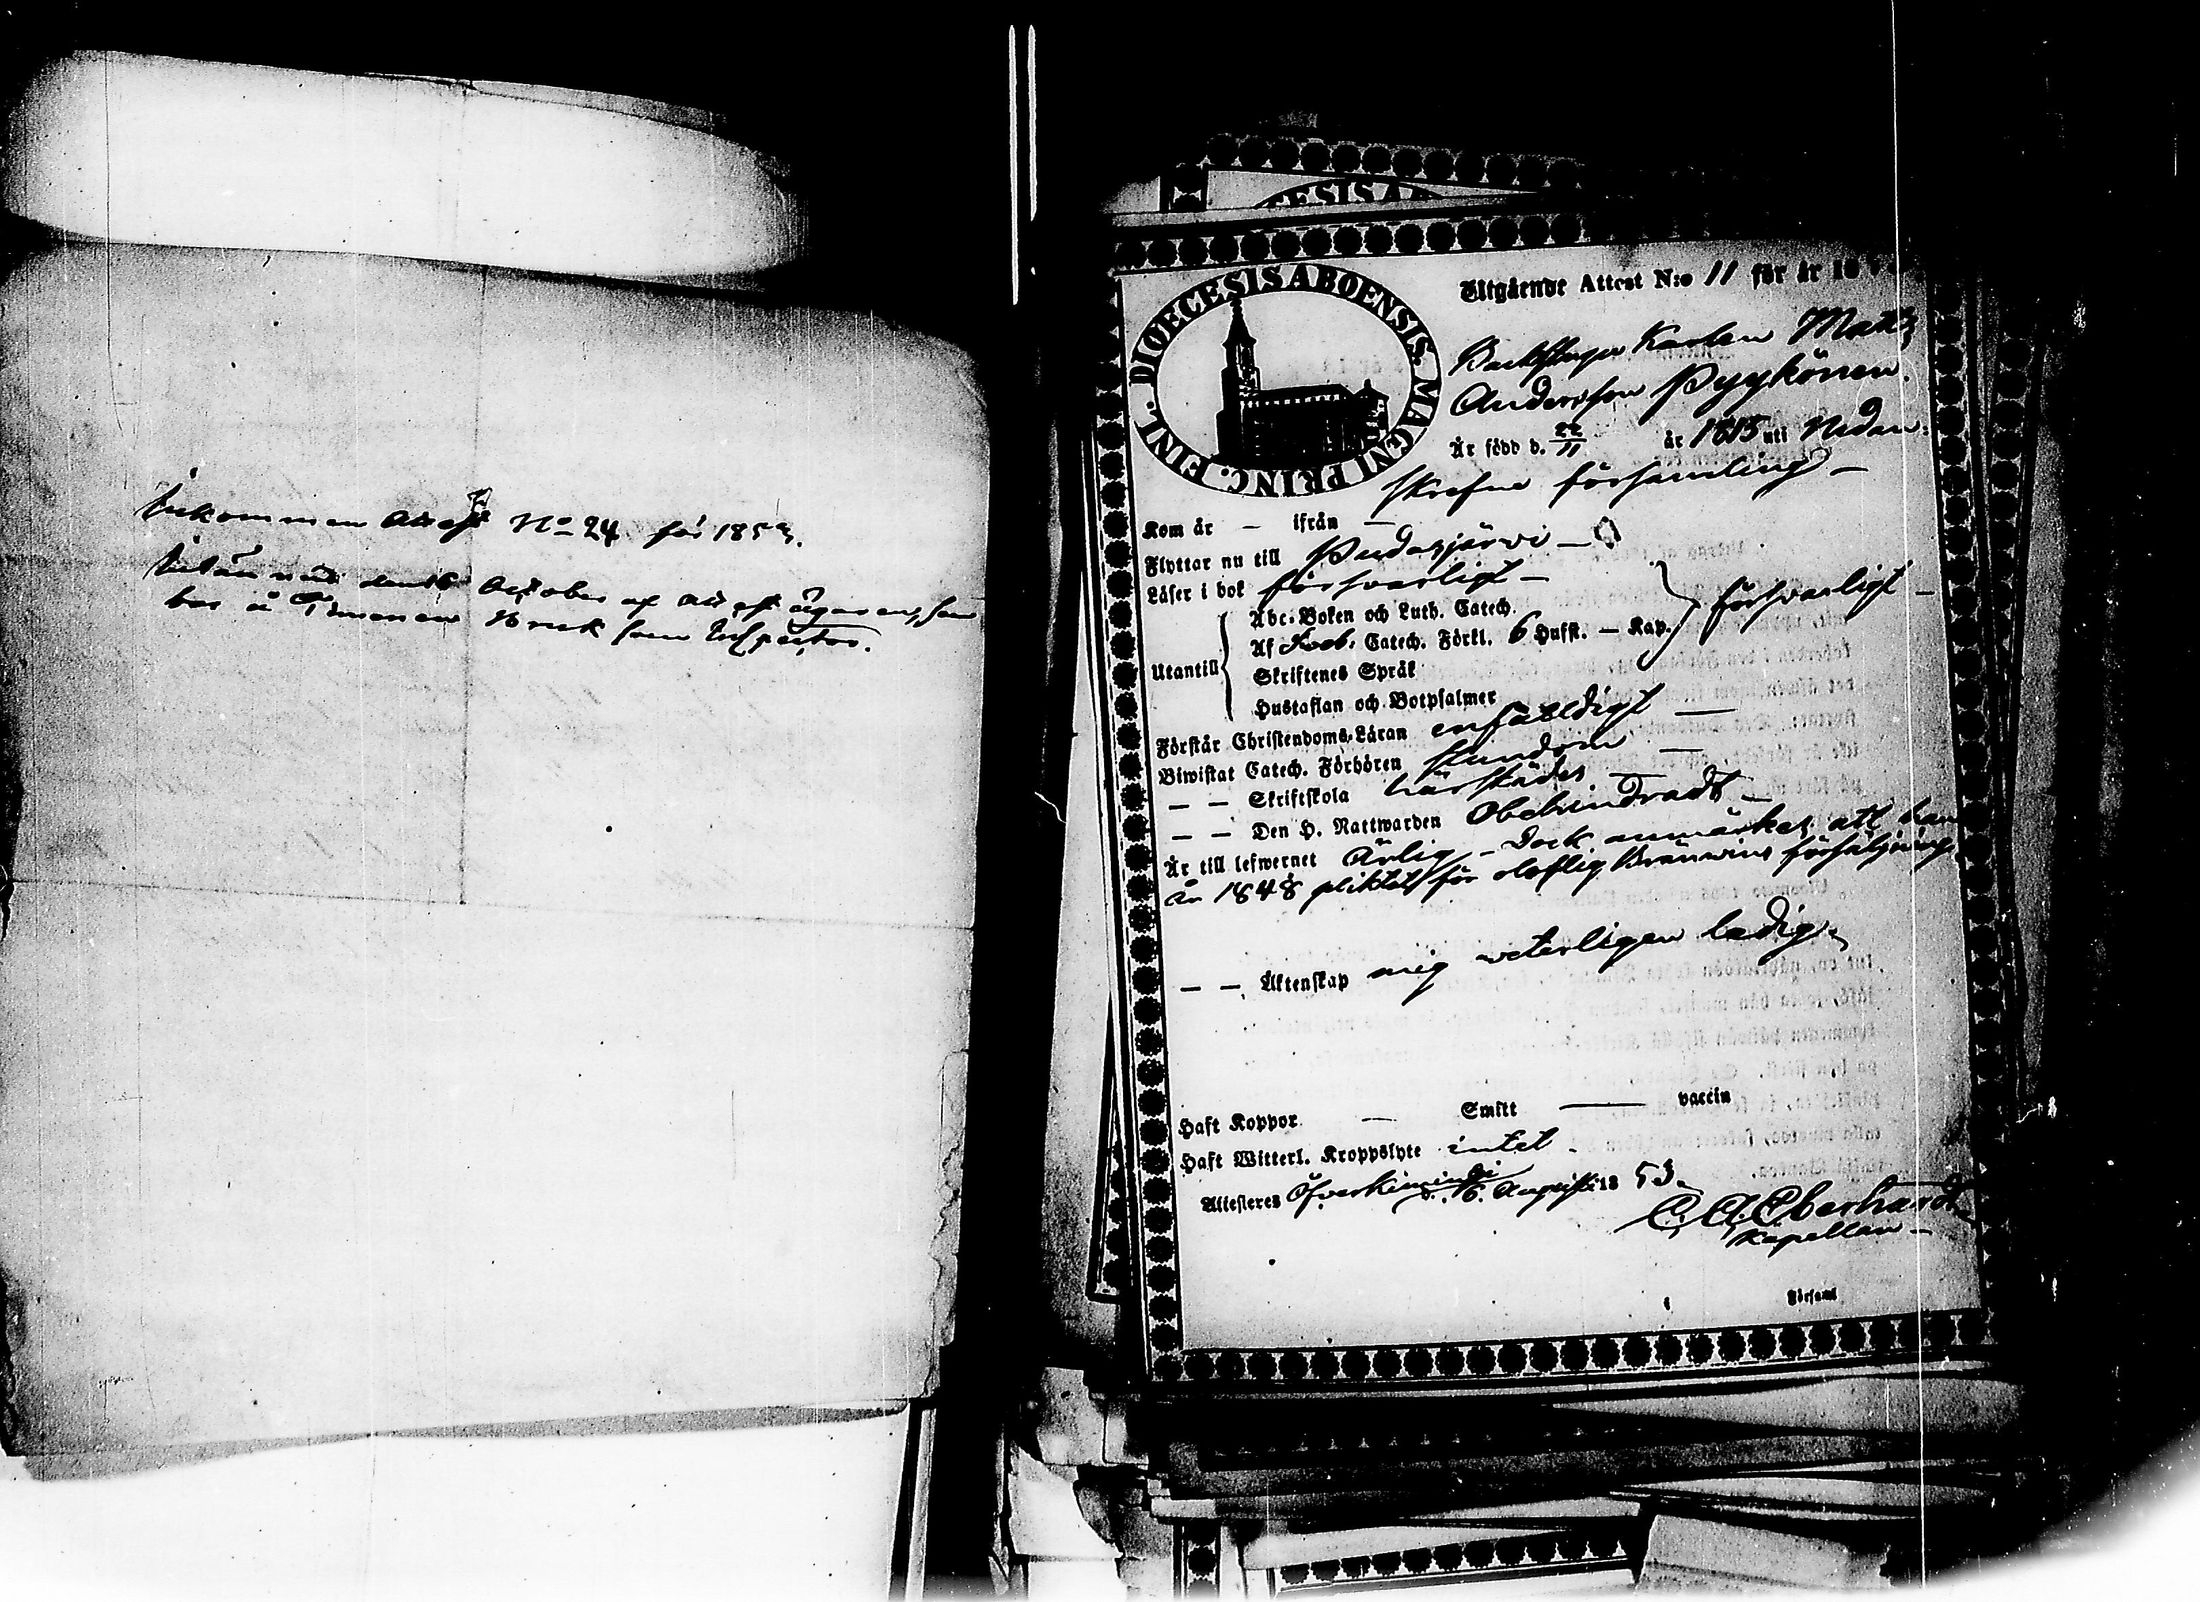 Inkommen Attest No 24 för 1853.
Inlämnad den 16 October af Attest ägaren, som
bor å Bruk som Inspector.
ESIS A
DIOECESIS ABOENSIS. MAGNI PRINC. FINL.
Utgående Attest N:o 11 för år 18
Backstugu Karlen Matts
Andersson Pyykönen.
Är född d. 22/11 år 1815 uti Nedan-
skrefne församling —
Kom år — ifrån —
Flyttar nu till Pudasjärvi —
Läser i bok försvarligt —
Utantill
Abc-Boken och Luth. Catech.
Af Sveb. Catech. Förkl. 6 Hufst. — Kap.
försvarligt —
Skriftenes Språk
Hustaflan och Botpsalmer
Förstår Christendoms-Läran enfaldigt —
Biwistat Catech. Förhören stundom —
— — Skriftskola härstädes
— — Den H. Nattwarden Obehindradt —
Är till lefwernet Ärlig — Dock anmärkes att han
år 1848 pliktat för olaflig Bränwins försäljning.
— — Äktenskap mig veterligen ledig.
Haft Koppor — Smitt — vaccin
Haft Witterl. Kroppslyte intet.
Attesteres Öfverkiminki d. 6. Augusti 18 53.
C. A. Eberhardt
Kapellan —
Församl